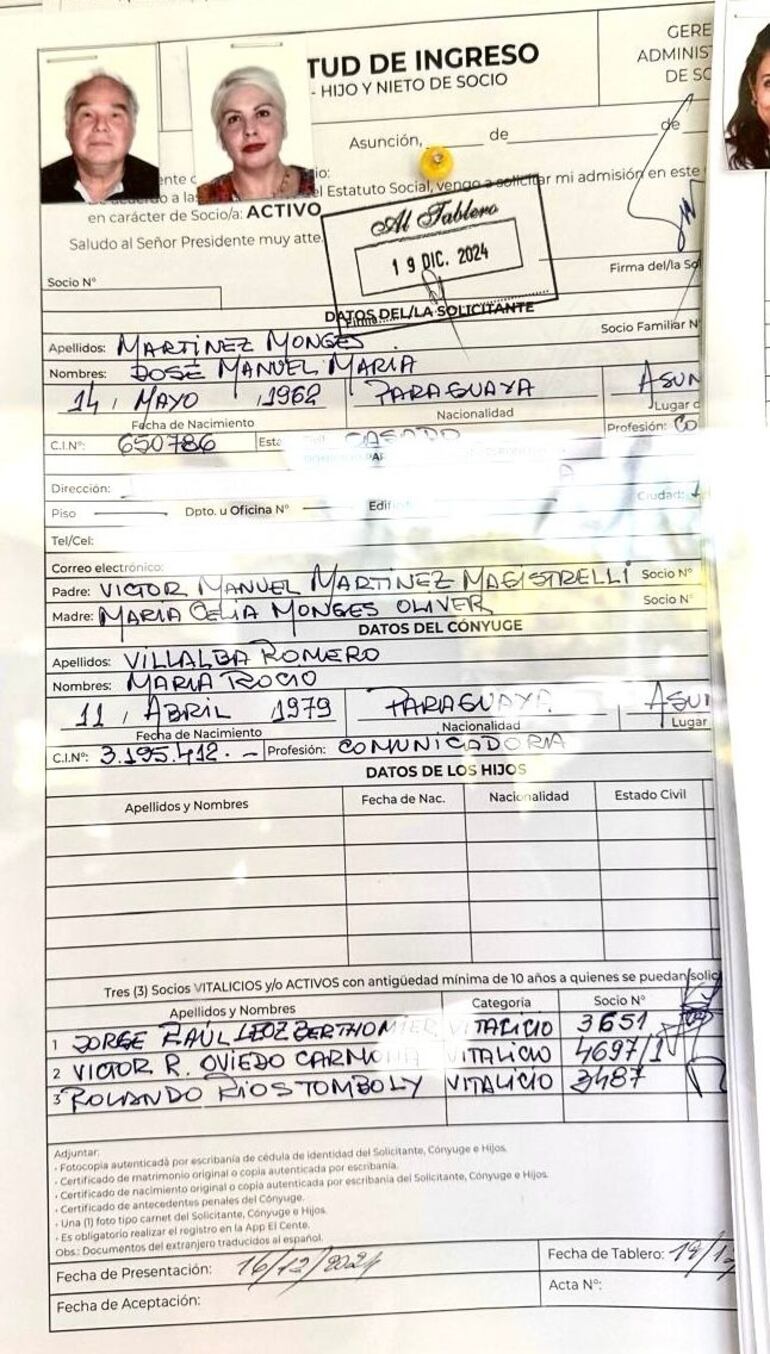 TUD DE INGRESO
- HIJO Y NIETO DE SOCIO
GERE
ADMINIS
DE SO
Asunción, ______ de __________________ de
el Estatuto Social, vengo a solicitar mi admisión en este
en carácter de Socio/a: ACTIVO
Saludo al Señor Presidente muy atte.
Al Tablero
19 DIC. 2024
Socio N°
Firma del/la Sol
DATOS DEL/LA SOLICITANTE
Socio Familiar N
Apellidos: MARTINEZ MONGES
Nombres: JOSÉ MANUEL MARIA
14, MAYO, 1962 PARAGUAYA ASUN
Fecha de Nacimiento Nacionalidad Lugar d
C.I.N°: 650786 Esta CASADO Profesión: CO
Dirección: Ciudad:
Piso Dpto. u Oficina N° Edifi
Tel/Cel:
Correo electrónico:
Padre: VICTOR MANUEL MARTINEZ MAGISTRELLI Socio N°
Madre: MARIA CELIA MONGES OLIVER Socio N°
DATOS DEL CÓNYUGE
Apellidos: VILLALBA ROMERO
Nombres: MARIA ROCIO
11, ABRIL 1979 PARAGUAYA ASUN
Fecha de Nacimiento Nacionalidad Lugar
C.I.N°: 3.195.412.- Profesión: COMUNICADORA
DATOS DE LOS HIJOS
Apellidos y Nombres Fecha de Nac. Nacionalidad Estado Civil
Tres (3) Socios VITALICIOS y/o ACTIVOS con antigüedad mínima de 10 años a quienes se puedan solic
Apellidos y Nombres Categoría Socio N°
1 JORGE RAÚL LEOZ BERTHOMIER VITALICIO 3651
2 VICTOR R. OVIEDO CARMONA VITALICIO 4697/1
3 ROLANDO RIOS TOMBOLY VITALICIO 3487
Adjuntar:
- Fotocopia autenticada por escribanía de cédula de identidad del Solicitante, Cónyuge e Hijos.
- Certificado de matrimonio original o copia autenticada por escribanía.
- Certificado de nacimiento original o copia autenticada por escribanía del Solicitante, Cónyuge e Hijos.
- Certificado de antecedentes penales del Cónyuge.
- Una (1) foto tipo carnet del Solicitante, Cónyuge e Hijos.
- Es obligatorio realizar el registro en la App El Cente.
Obs.: Documentos del extranjero traducidos al español.
Fecha de Presentación: 16/12/2024 Fecha de Tablero: 19/12
Fecha de Aceptación: Acta N°: